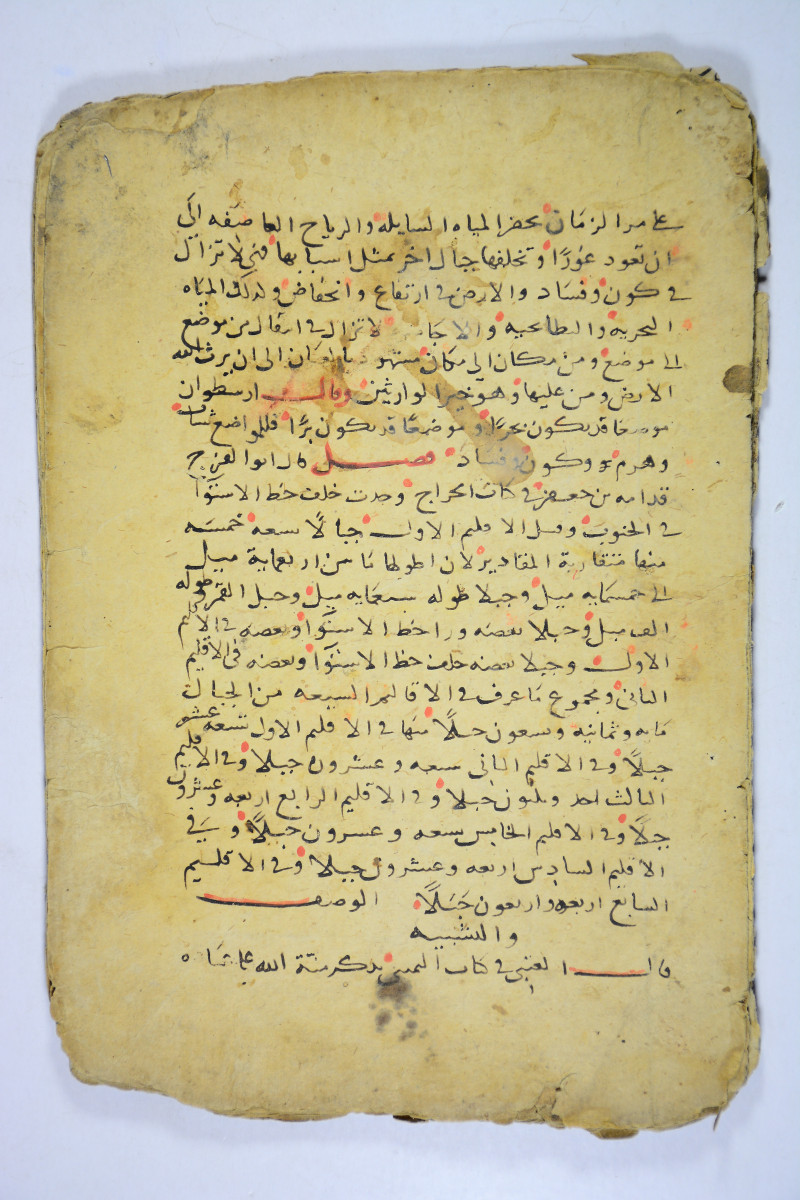 على مر الزمان بحفر المياه السايله والرياح العاصفه الى
ان تعود غورًا وتخلفها جبال اخر بمثل اسبابها فهي لا تزال
في كون وفساد والارض في ارتفاع وانخفاض وكذلك المياه
البحريه والبطايحيه لا تزال في انتقال من موضع
الى موضع ومن مكان الى مكان الى ان يرث الله
الارض ومن عليها وهو خير الوارثين وقال ارسطو ان
موضعا قد يكون بحرًا وموضعًا قد يكون برًا فللمواضع شباب
وهرم وكون وفساد فصل قال ابو الفرج
قدامه بن جعفر في كتاب الخراج وجدت خلف خط الاستوآ
في الجنوب وقبل الاقليم الاول جبالًا تسعه خمسه
منها متقاربة المقادير لان اطوالها ما بين اربعماية ميل
الى خمسمايه ميل وجبلا طوله سبعمايه ميل وجبل القمر وطوله
الف ميل وجبلا بعضه ورا خط الاستوآ وبعضه في الاقليم
الاول وجبلا بعضه خلف خط الاستوآ وبعضه في الاقليم
الثاني ومجموع ما عرف في الاقاليم السبعه من الجبال
مايه وثمانيه وتسعون جبلًا منها في الاقليم الاول تسعه عشر
جبلًا وفي الاقليم الثاني سبعه وعشرون جبلا وفي الاقليم
الثالث احد وثلثون جبلا وفي الاقليم الرابع اربعه وعشرون
جبلًا وفي الاقليم الخامس تسعه وعشرون جبلًا وفي
الاقليم السادس اربعه وعشرون جبلا وفي الاقليم
السابع اربعه واربعون جبلًا الوصف
والتشبيه
قال العتبي في كتاب اليميني يذكر منة الله على